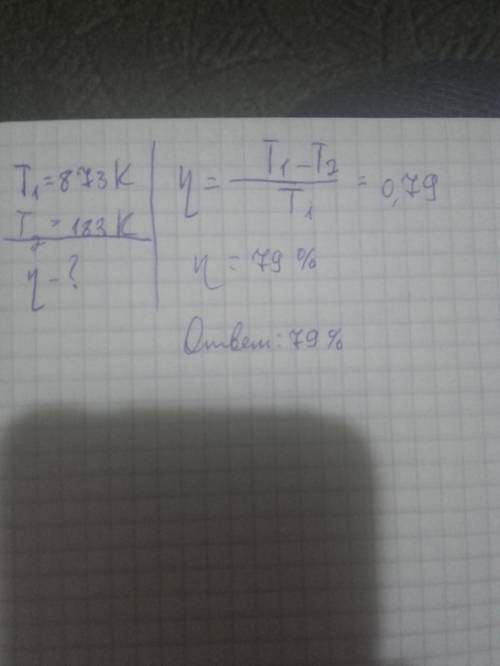 T₁ = 873 K
T₂ = 183 K
η - ?
η = (T₁ - T₂) / T₁ = 0,79
η = 79 %
Ответ: 79 %